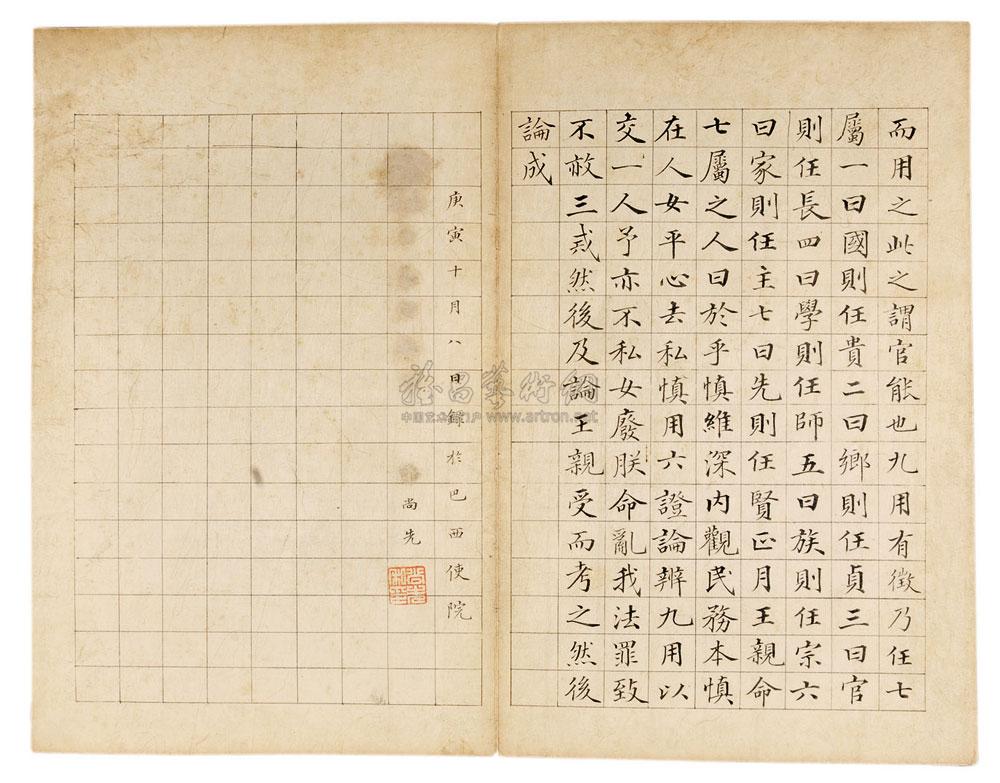 而用之此之謂官能也九用有徵乃任七
屬一曰國則任貴二曰鄉則任貞三曰官
則任長四曰學則任師五曰族則任宗六
曰家則任主七曰先則任賢正月王親命
七屬之人曰於乎慎維深內觀民務本慎
在人女平心去私慎用六證論辨九用以
交一人予亦不私女廢朕命亂我法罪致
不赦三戒然後及論王親受而考之然後
論成
庚寅十月八日錄於巴西使院
尚先
雅昌藝術網
中国艺术品门户 www.artron.net